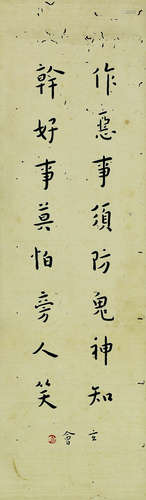 作惡事須防鬼神知
幹好事莫怕旁人笑
玄會